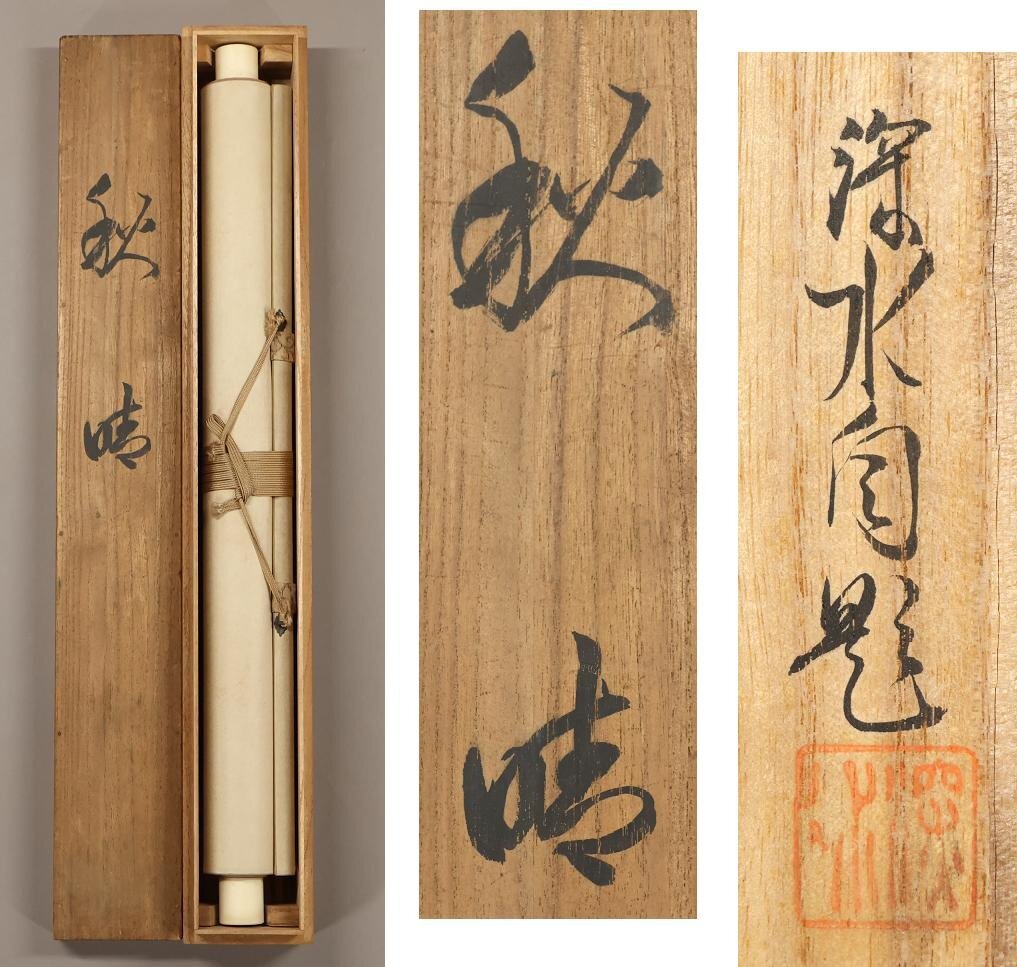 秋晴
秋晴
深水自題